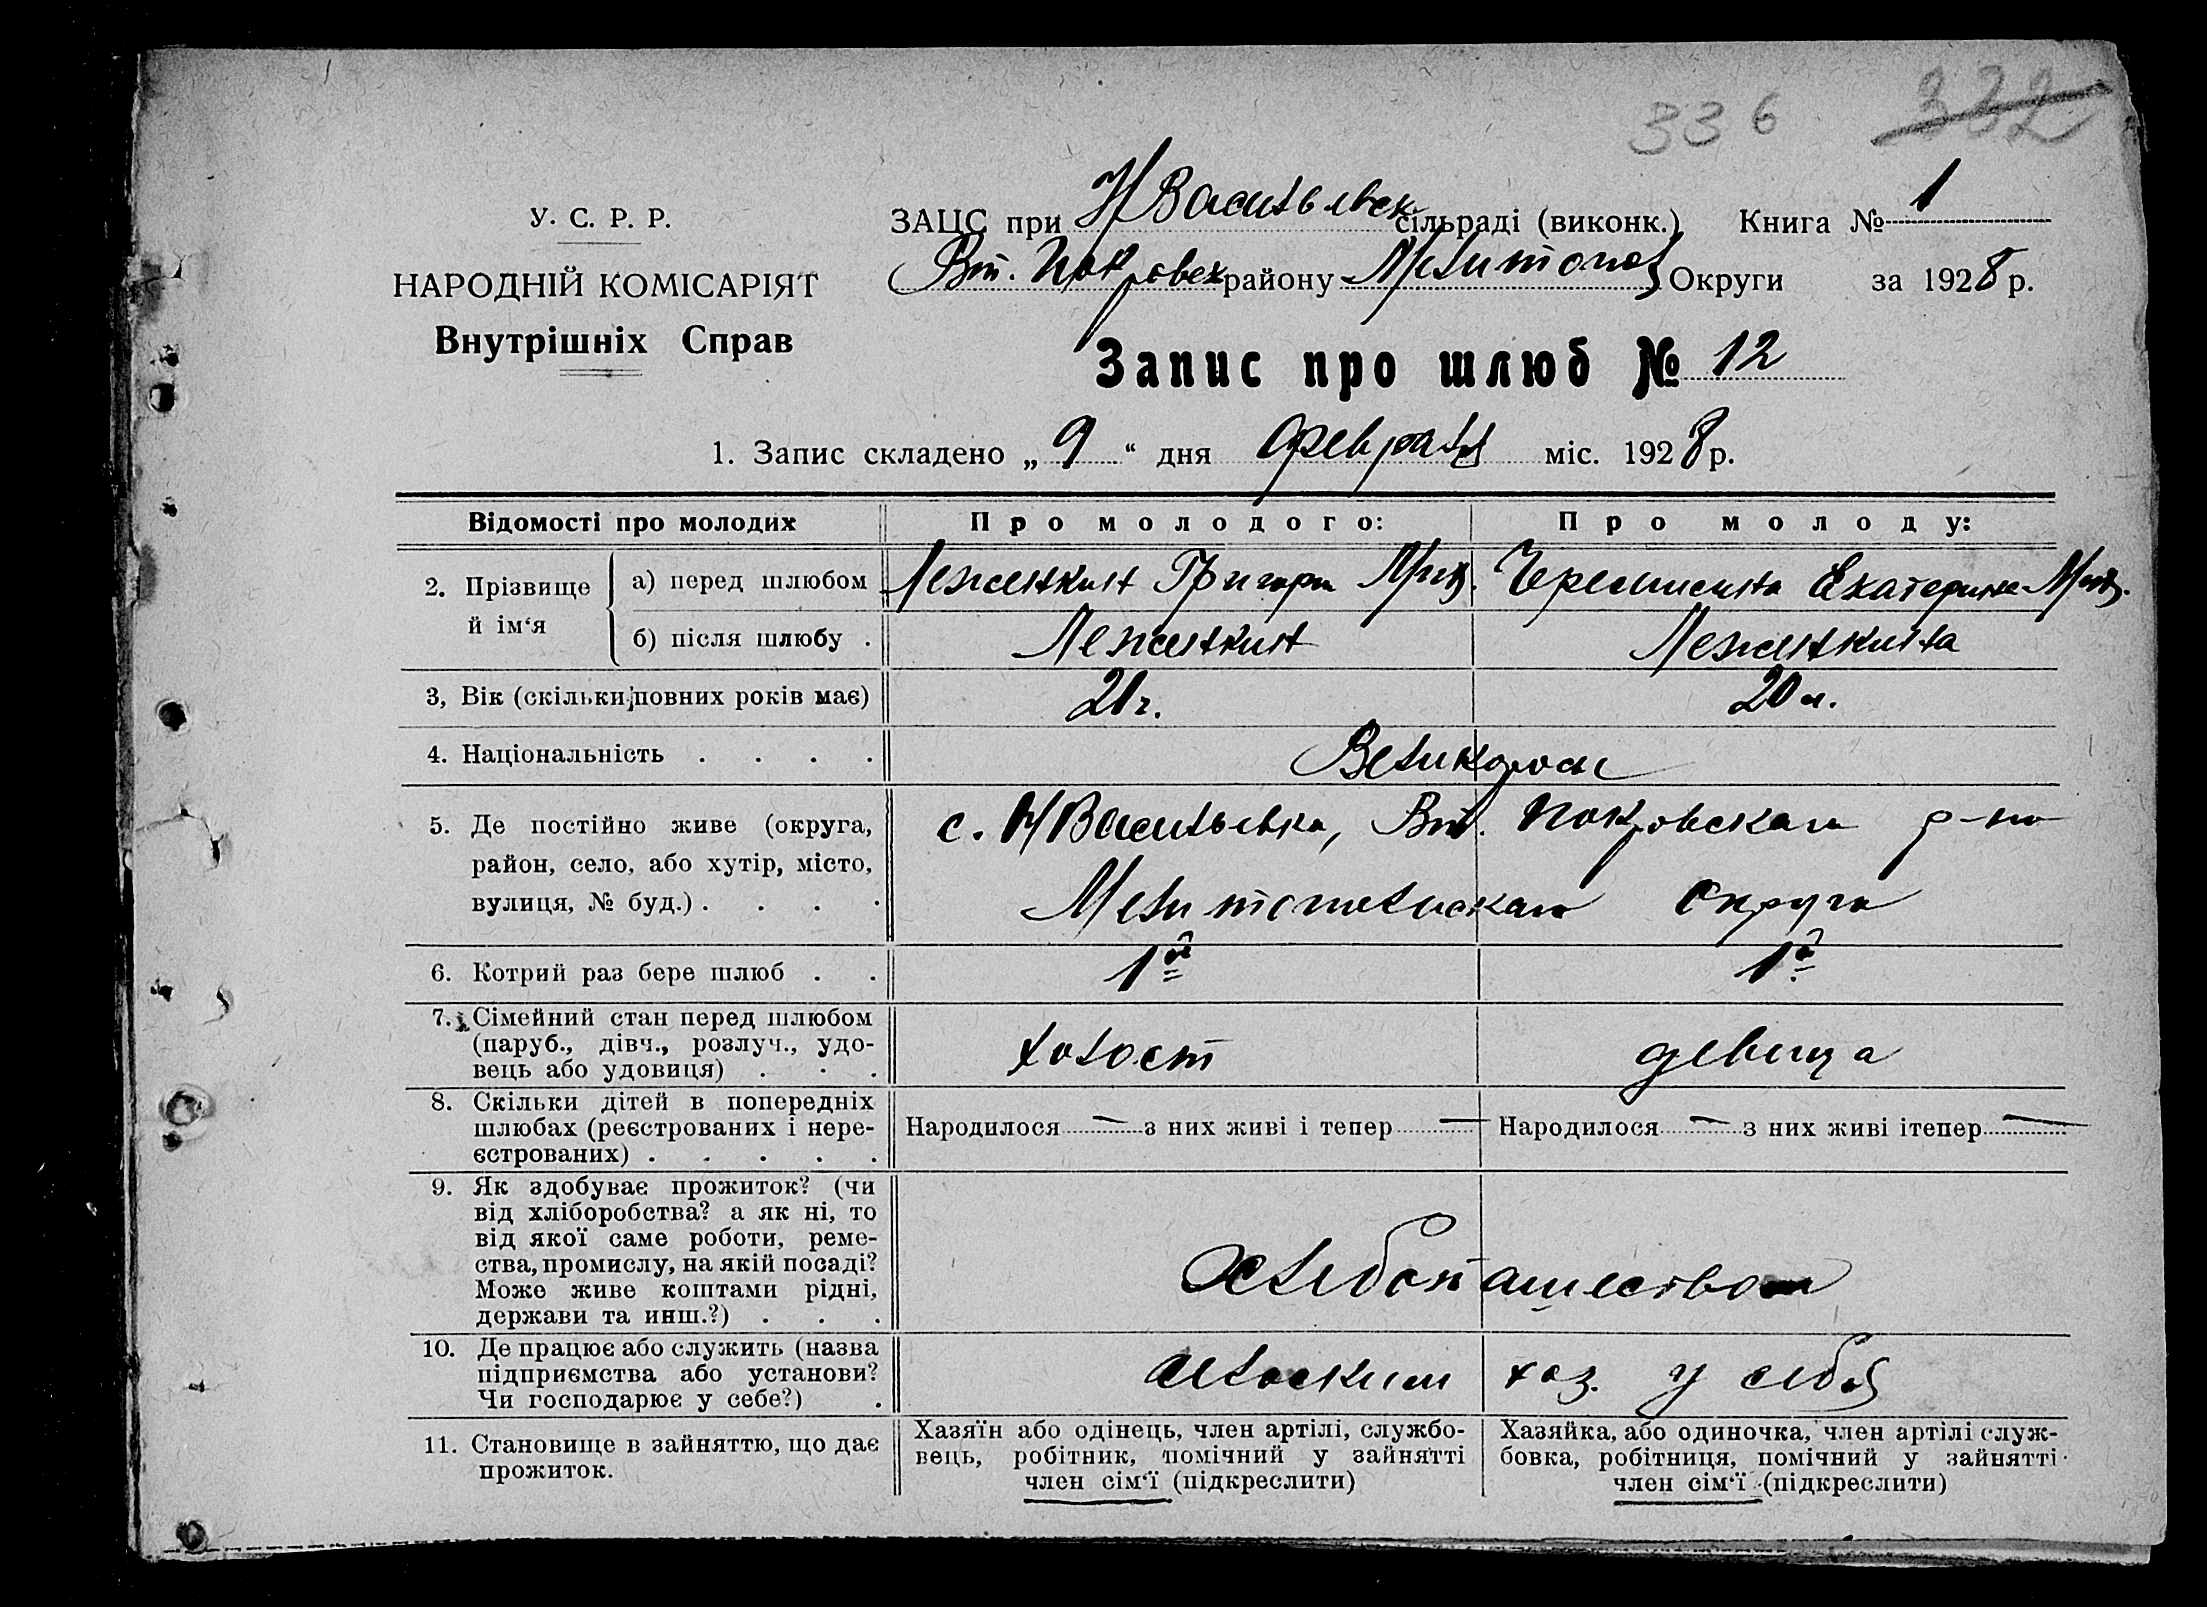 336 332
У. С. Р. Р.
НАРОДНІЙ КОМІСАРІЯТ
Внутрішніх Справ
ЗАЦС при Н Васильевск сільраді (виконк.) Книга № 1
Вт. Покровск району Мелитопол Округи за 1928 р.
Запис про шлюб № 12
1. Запис складено „ 9 “ дня февраля міс. 1928 р.
Відомості про молодих Про молодого: Про молоду:
2. Прізвище й ім‘я
а) перед шлюбом Леженкин Григори Черемисина Екатерина
б) після шлюбу . Леженкин Леженкина
3, Вік (скільки повних років має) 21 г. 20 л.
4. Національність . . . . Великоросы
5. Де постійно живе (округа, с. Н Васильевка, Вт. Покровскаго р-на
район, село, або хутір, місто,
вулиця, № буд.) . . . . Мелитопольскаго округа
6. Котрий раз бере шлюб . . 1й 1й
7. Сімейний стан перед шлюбом
(паруб., дівч., розлуч., удо- холост девица
вець або удовиця) . . .
8. Скільки дітей в попередніх
шлюбах (реєстрованих і нере- Народилося — з них живі і тепер — Народилося — з них живі ітепер —
єстрованих) . . . . .
9. Як здобуває прожиток? (чи
від хліборобства? а як ні, то
від якої саме роботи, реме-
ства, промислу, на якій посаді? хлебопашеством
Може живе коштами рідні,
держави та инш.?) . . .
10. Де працює або служить (назва
підприємства або установи? сельским хоз. у себя
Чи господарює у себе?) .
11. Становище в зайняттю, що дає
прожиток.
Хазяїн або одінець, член артілі, службо-
вець, робітник, помічний у зайнятті
член сім‘ї (підкреслити)
Хазяйка, або одиночка, член артілі служ-
бовка, робітниця, помічний у зайнятті
член сім‘ї (підкреслити)